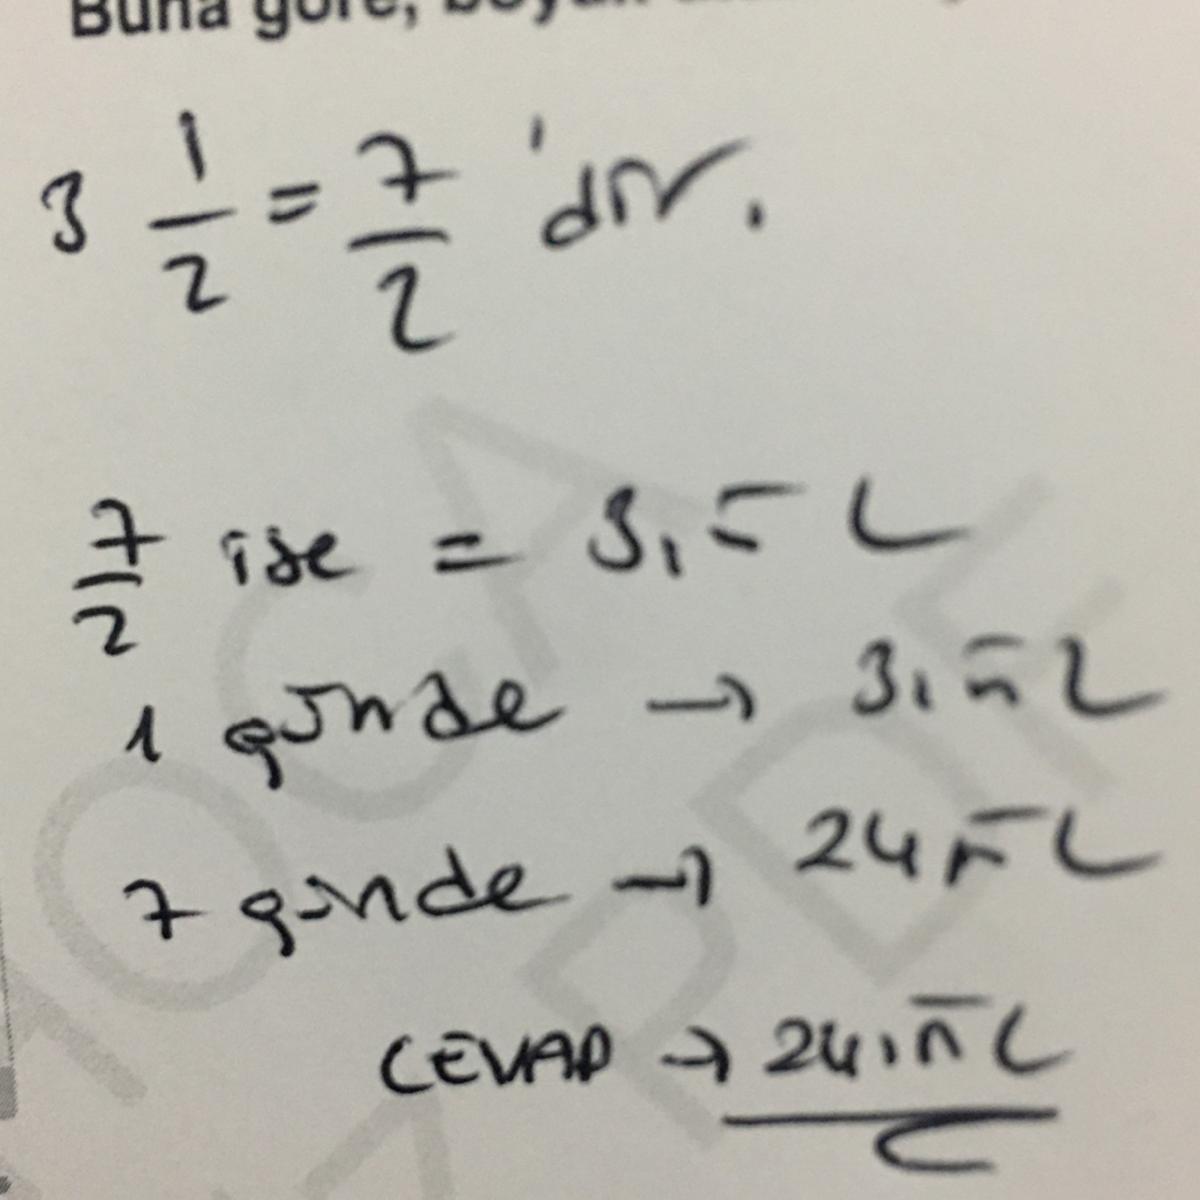 Buna göre,
3 1/2 = 7/2 'dir.
7/2 ise = 3,5 L
1 günde → 3,5 L
7 günde → 24,5 L
CEVAP → 24,5 L